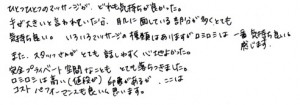 ひとつひとつのマッサージが、どれも気持ちが良かった。
手が大きいと言われていたが、肌に面している部分が多くとても
気持ち良い。いろいろマッサージの種類はありますがロミロミは一番気持ち良いと
感じます。
また、スタッフさんがとても話しやすく心地よかった。
完全プライベート空間なことも とても落ちつきました。
ロミロミは高い(値段が)印象があるが、ここは
コストパフォーマンスも良いと思います。